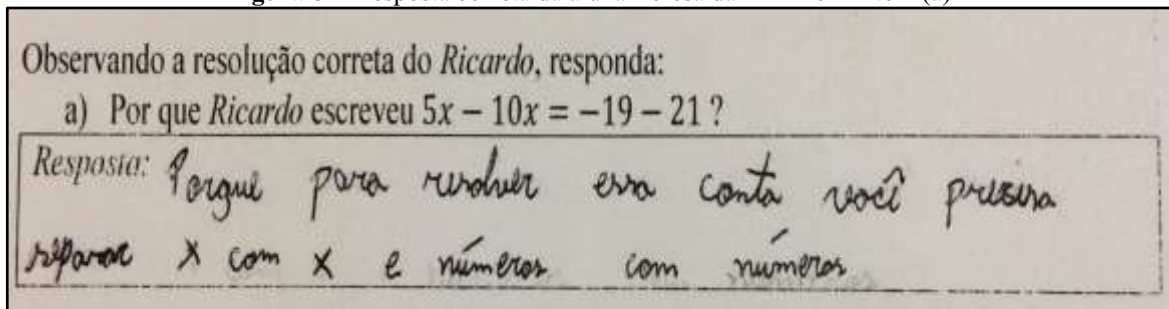 Observando a resolução correta do Ricardo, responda:
a) Por que Ricardo escreveu 5x − 10x = −19 − 21 ?
Resposta: Porque para resolver essa conta você precisa
separar x com x e números com números